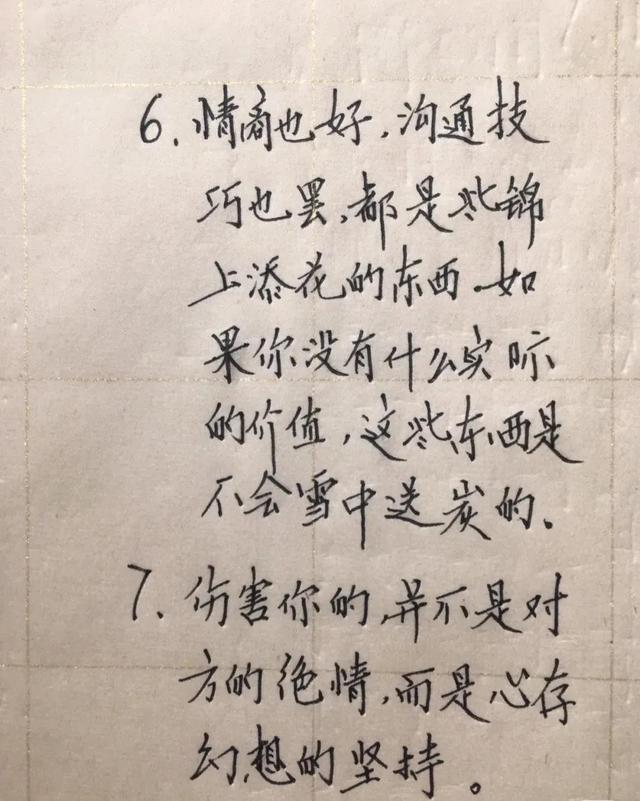 6.情商也好,沟通技
巧也罢,都是些锦
上添花的东西.如
果你没有什么实际
的价值,这些东西是
不会雪中送炭的。
7.伤害你的,并不是对
方的绝情,而是心存
幻想的坚持。